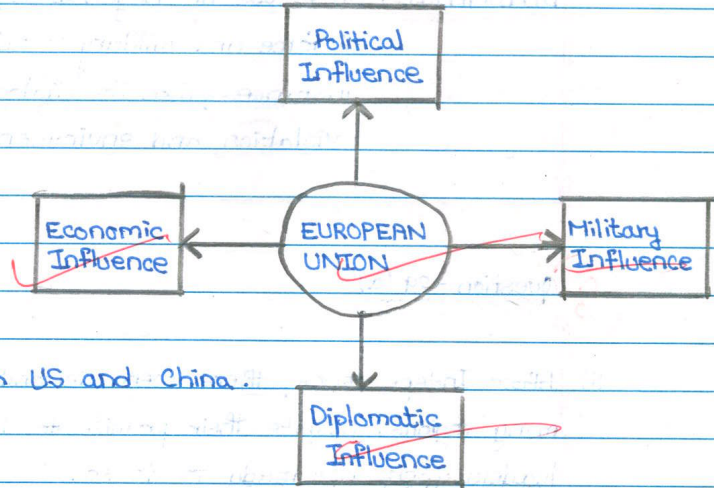 Political
Influence
Economic
Influence
EUROPEAN
UNION
Military
Influence
n US and China.
Diplomatic
Influence